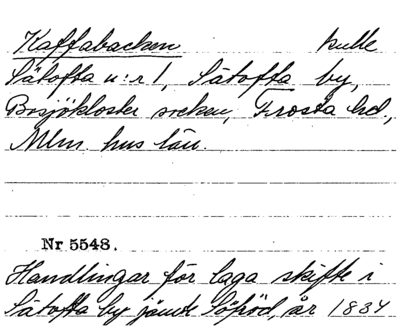 Kaffabacken kulle
Sätofta n:r 1, Sätofta by,
Bosjökloster socken, Frosta hd.,
Mlm. hus län.
Nr 5548.
Handlingar för laga skifte i
Sätofta by jämte Söröd, år 1834